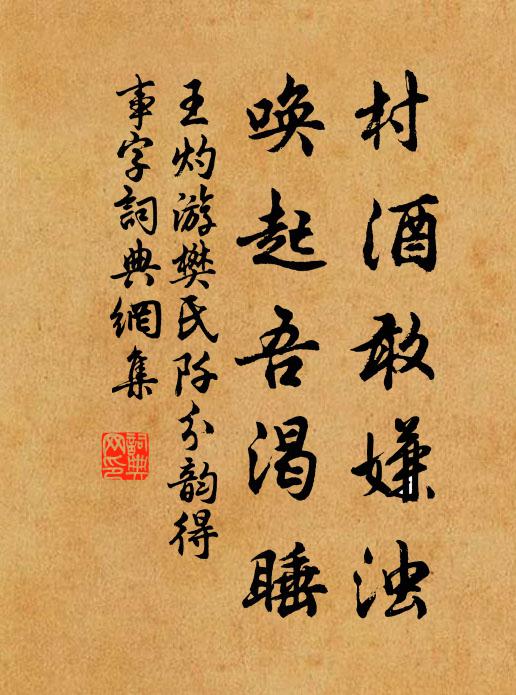 村酒敢嫌浊
唤起吾渴睡
王灼游樊氏阡分韵得
事字詞典網集
詞典
网印